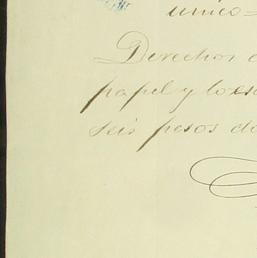 unico=
Derechos
papel y los
seis pesos do